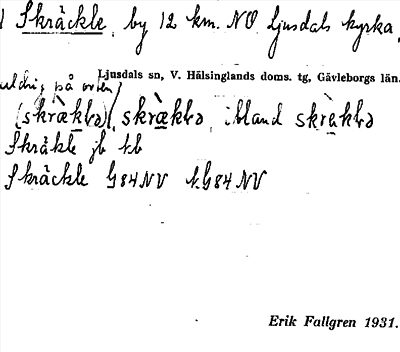 Skräckle, by 12 km. NO Ljusdals kyrka,
Ljusdals sn, V. Hälsinglands doms. tg, Gävleborgs län.
aldrig på orten
(skrὰkḷə), skrὰkḷə, ibland skrὰkḷə
Skräkle jb tb
Skräckle G84NV t. G84 NV
Erik Fallgren 1931.